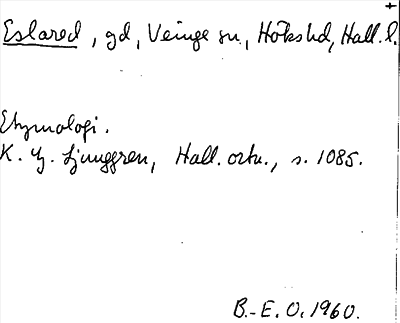 Eslared, gd, Veinge sn., Hökshd, Hall. l.
Etymologi.
K. G. Ljunggren, Hall. ortn., s. 1085.
B.-E. O. 1960.